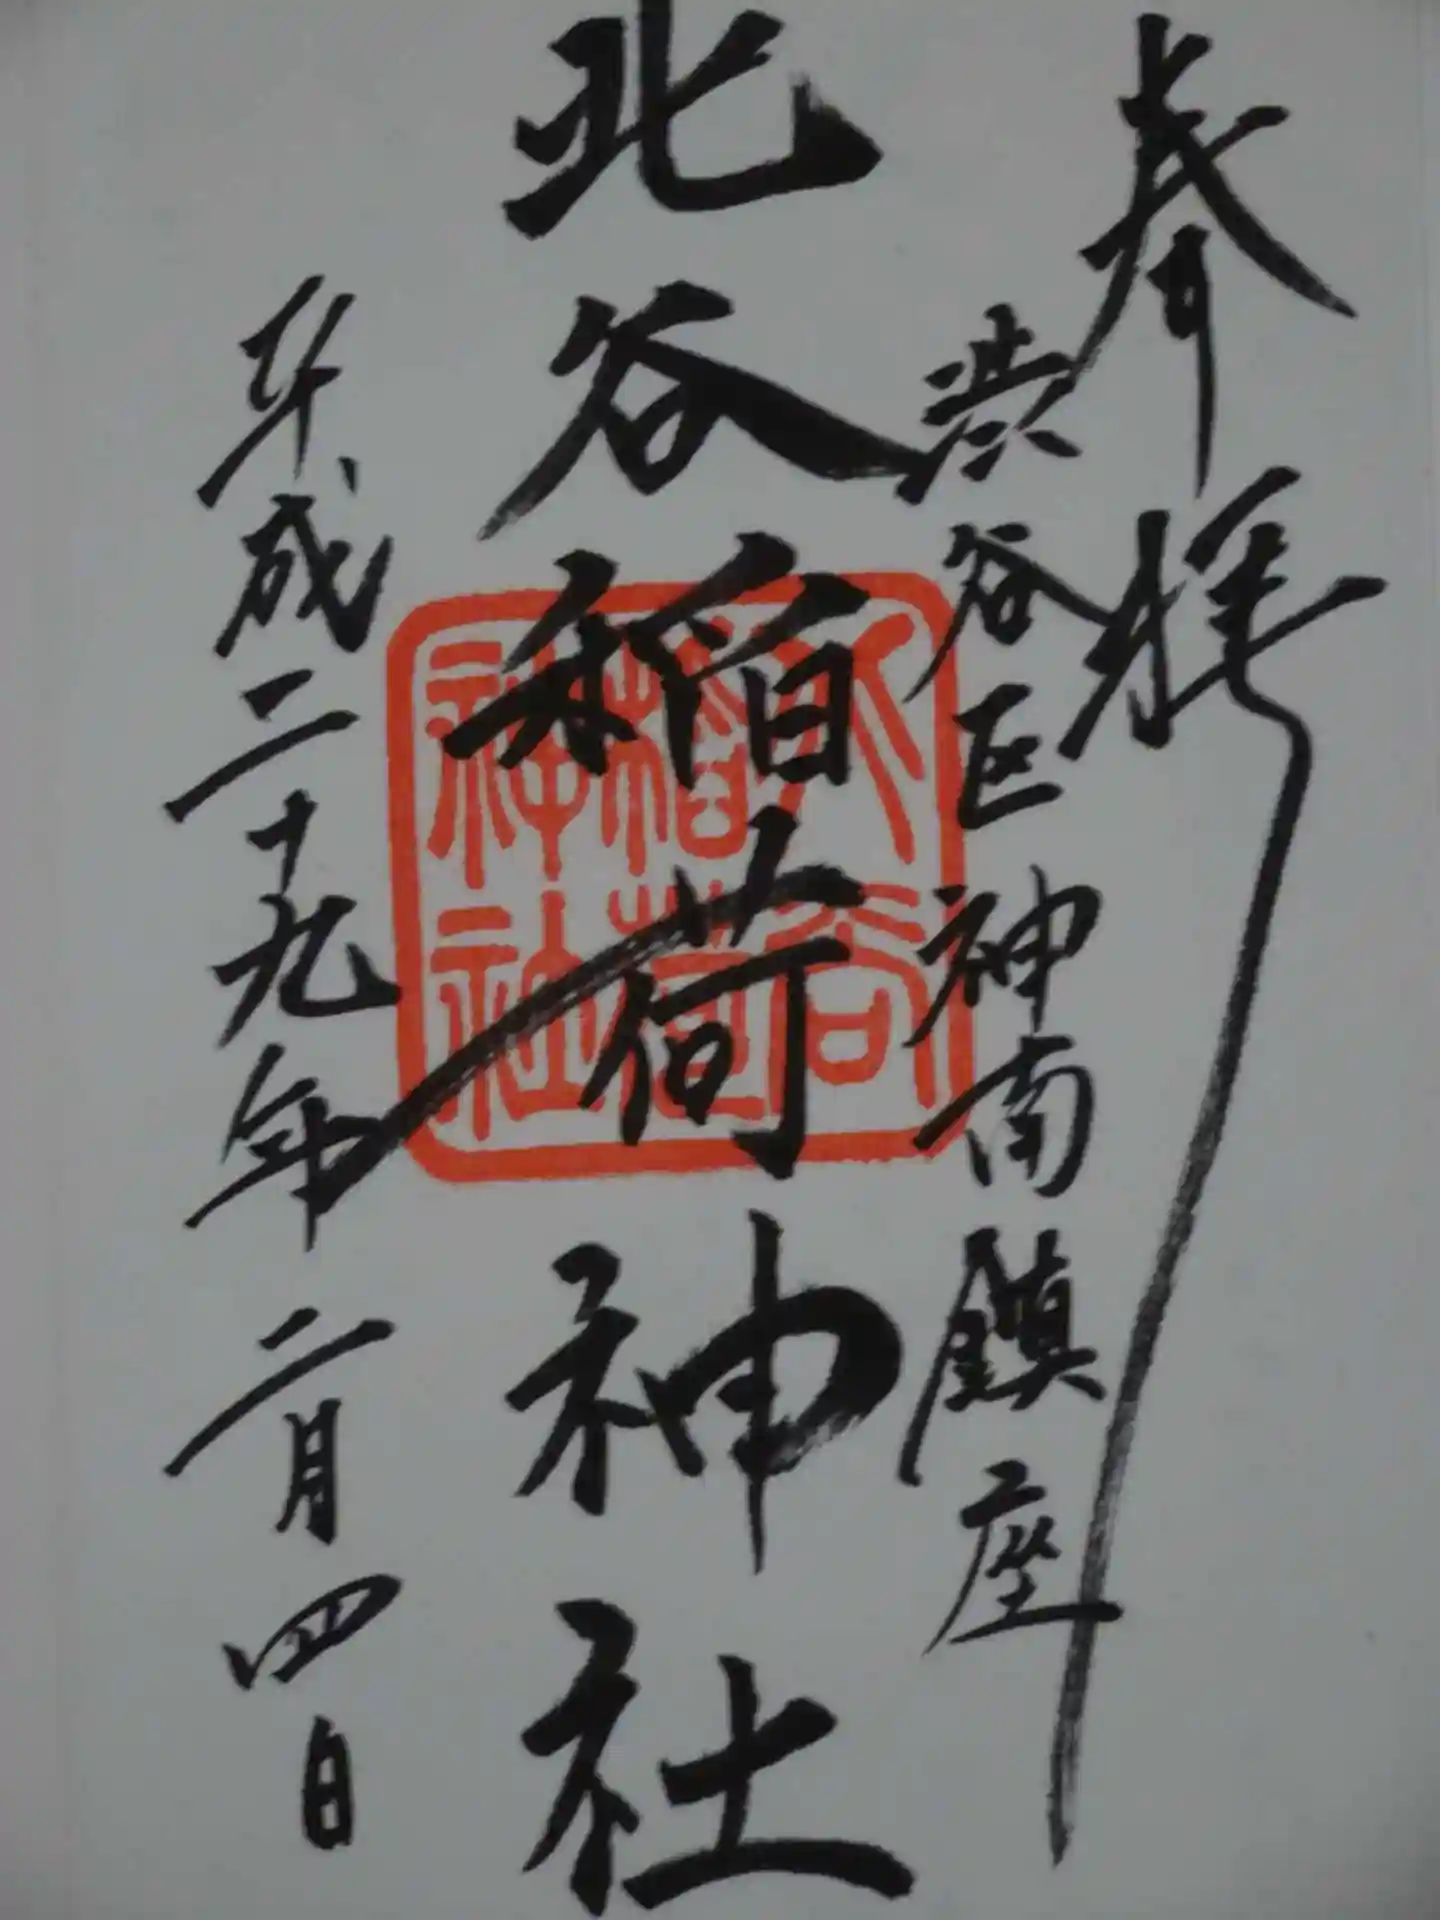 奉拝
渋谷区神南鎮座
北谷稲荷神社
北谷
稲荷
神社
平成二十九年二月四日